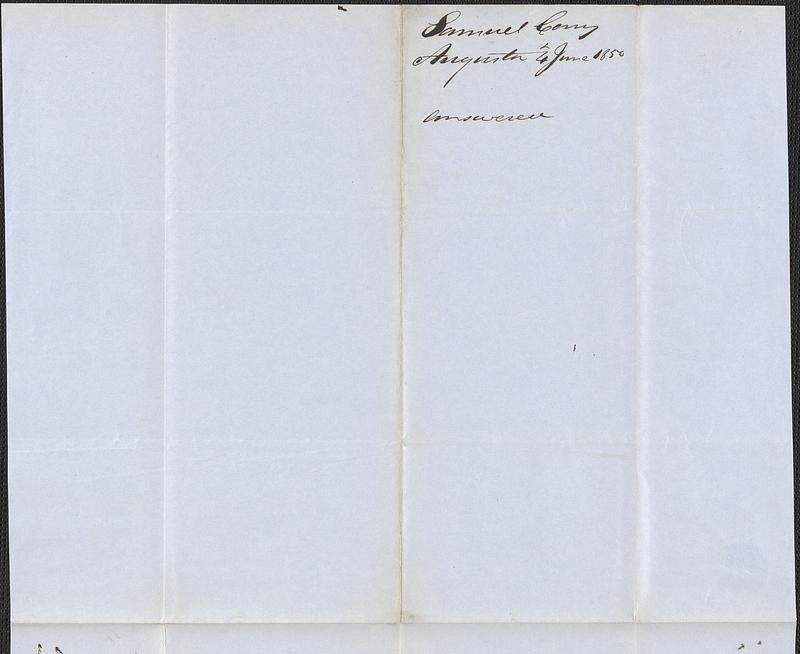 Samuel Cony
Augusta 4 June 1850
Answered